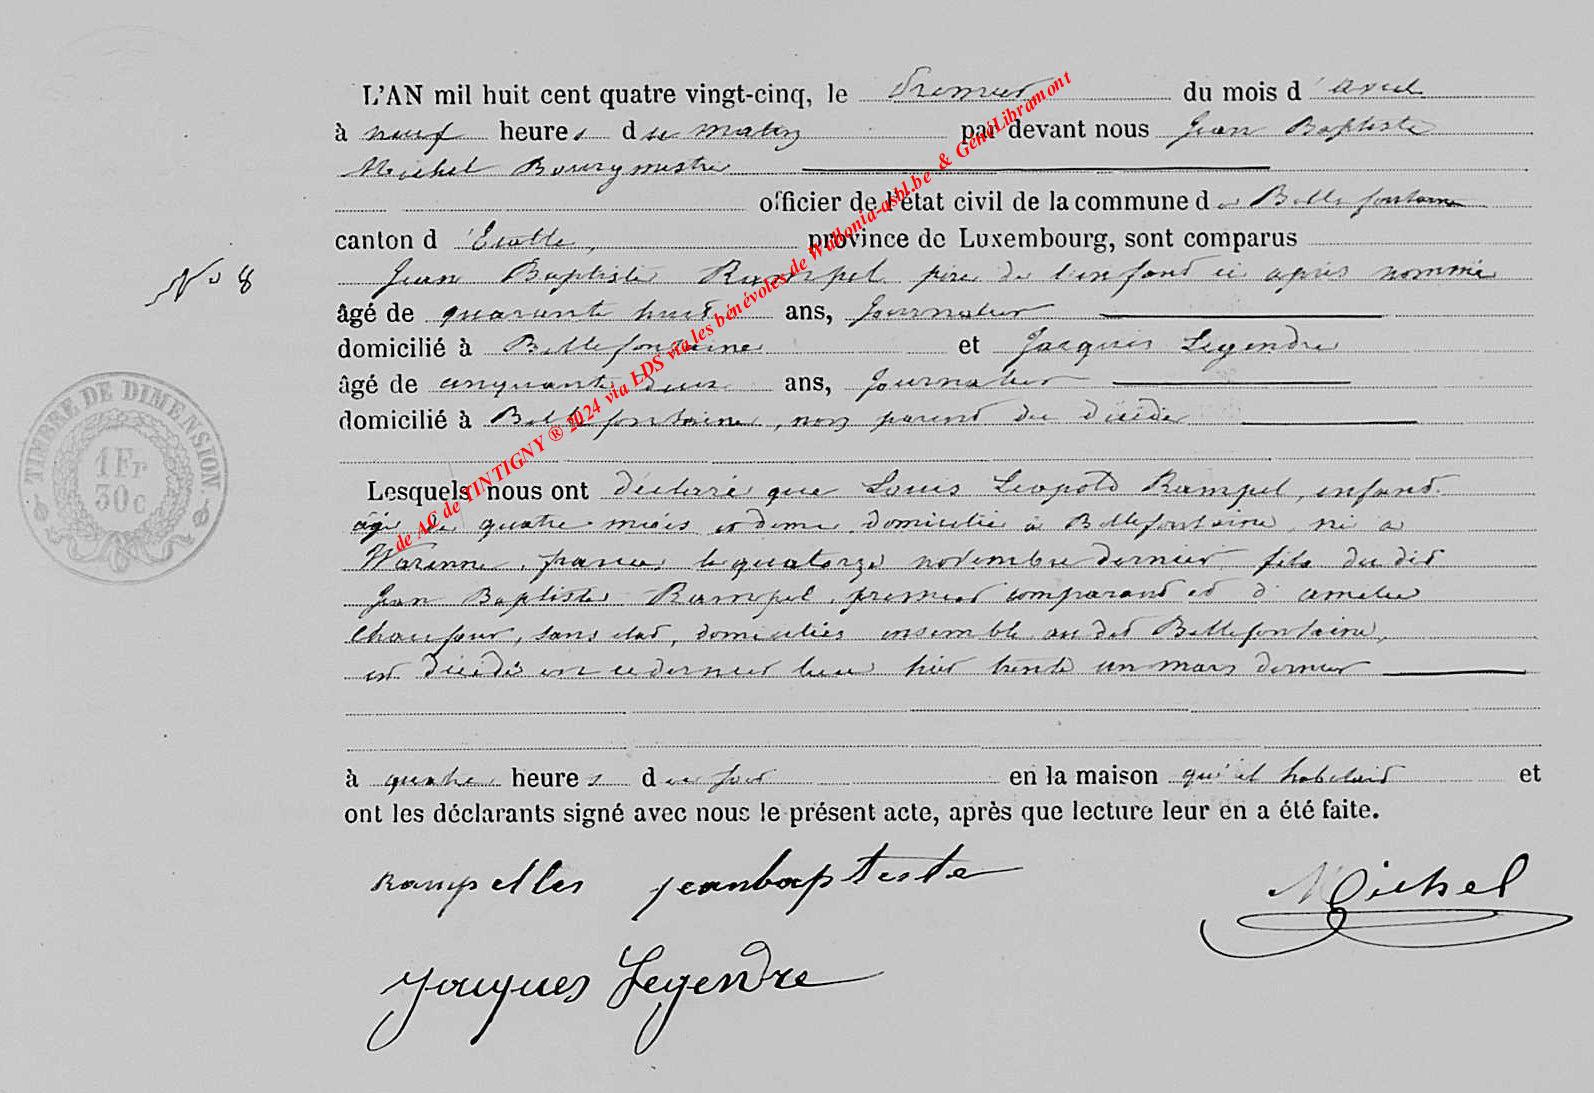 L'AN mil huit cent quatre vingt-cinq, le Premier du mois d'avril
à neuf heures du matin par devant nous Jean Baptiste
Michel Bourgmestre
officier de l'état civil de la commune de Bellefontaine
canton d'Etalle, province de Luxembourg, sont comparus
N° 8
Jean Baptiste Rampel père de l'enfant ci après nommé
âgé de quarante huit ans, Journalier
domicilié à Bellefontaine et Jacques Legendre
âgé de cinquante deux ans, Journalier
domicilié à Bellefontaine, non parent du décédé
Lesquels nous ont déclaré que Louis Leopold Rampel, enfant
âgé de quatre mois et demi domicilié à Bellefontaine né à
Warenne, france, le quatorze novembre dernier fils du dit
Jean Baptiste Rampel, premier comparant et d'amelie
, sans état, domiciliés ensemble au dit Bellefontaine,
est décédé en ce dernier lieu hier trente un mars dernier
à quatre heures du soir en la maison qu'il habitait et
ont les déclarants signé avec nous le présent acte, après que lecture leur en a été faite.
Rampelles jeanbaptiste
Michel
Jacques Legendre
TIMBRE DE DIMENSION
1 Fr
30c
de AC de TINTIGNY ® 2024 via LDS via les bénévoles de Wallonia-asbl.be & GéniLibramont